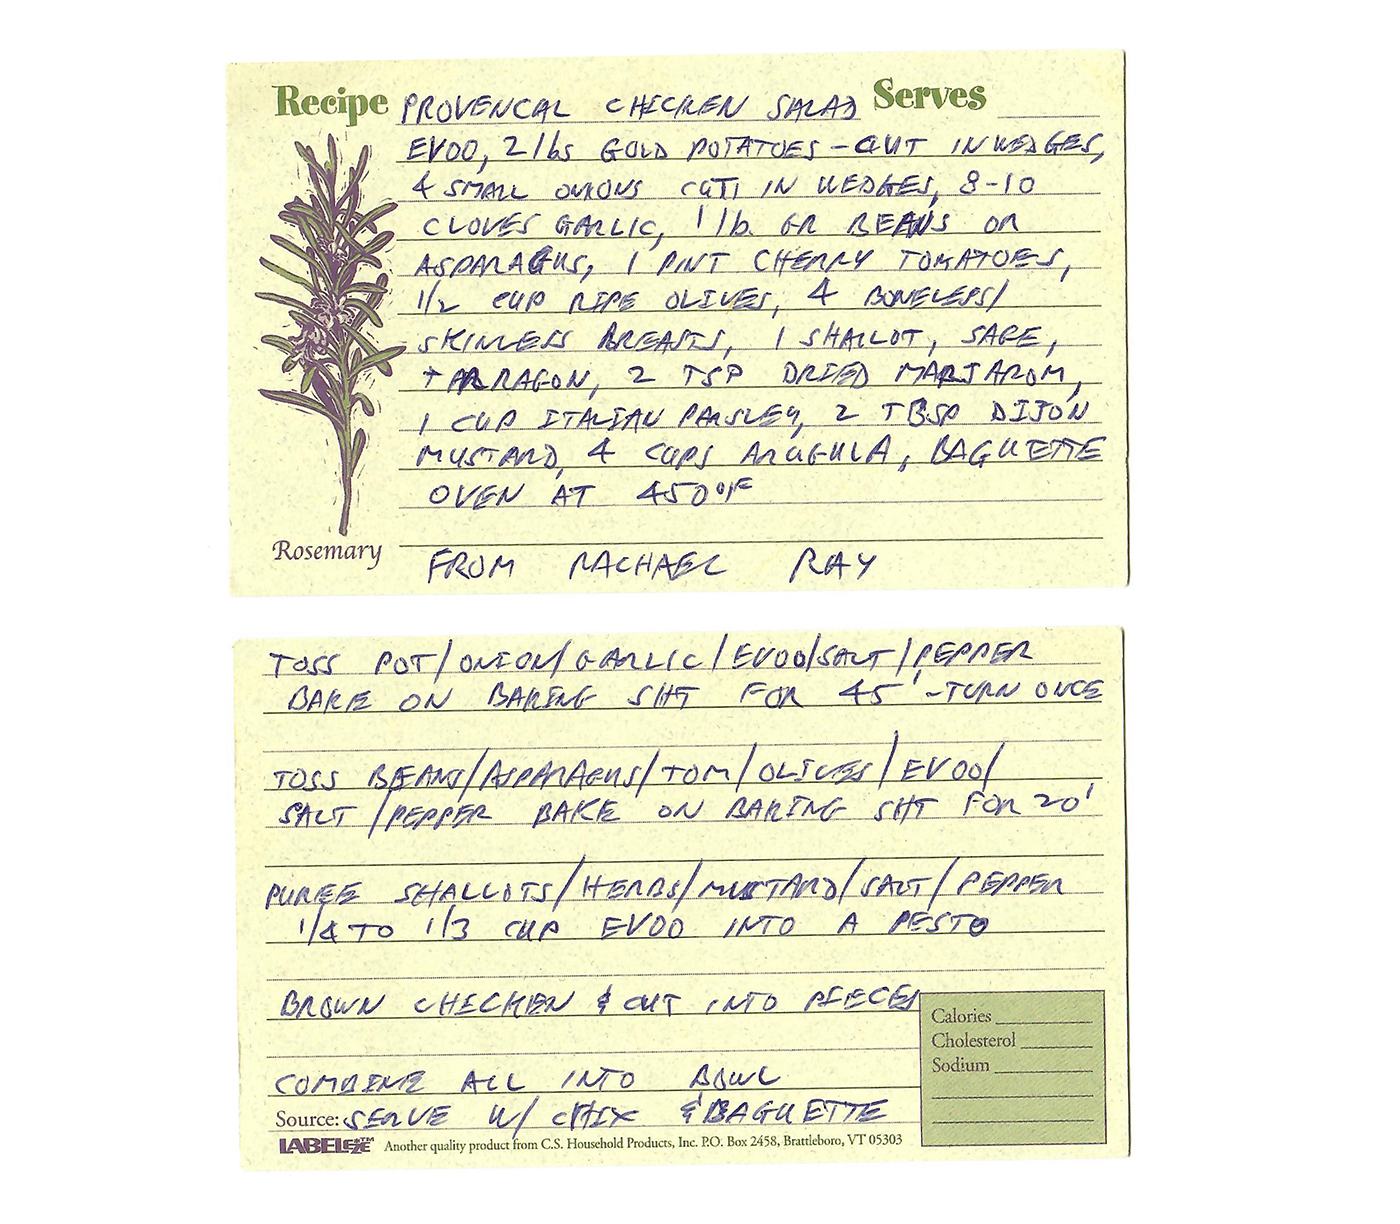 Recipe PROVENCAL CHICKEN SALAD Serves
EVOO, 2 lbs GOLD POTATOES - CUT IN WEDGES,
4 SMALL ONIONS CUT IN WEDGES, 8-10
CLOVES GARLIC, 1 lb. GR BEANS OR
ASPARAGUS, 1 PINT CHERRY TOMATOES,
1/2 CUP RIPE OLIVES, 4 BONELESS/
SKINLESS BREASTS, 1 SHALLOT, SAGE,
TARRAGON, 2 TSP DRIED MARJAROM,
1 CUP ITALIAN PARSLEY, 2 TBSP DIJON
MUSTARD, 4 CUPS ARUGULA, BAGUETTE
OVEN AT 450°F
Rosemary
FROM RACHAEL RAY
TOSS POT/ONION/GARLIC/EVOO/SALT/PEPPER
BAKE ON BAKING SHT FOR 45' - TURN ONCE
TOSS BEANS/ASPARAGUS/TOM/OLIVES/EVOO/
SALT/PEPPER BAKE ON BAKING SHT FOR 20'
PUREE SHALLOTS/HERBS/MUSTARD/SALT/PEPPER
1/4 TO 1/3 CUP EVOO INTO A PESTO
BROWN CHICKEN & CUT INTO PIECES
Calories
Cholesterol
Sodium
COMBINE ALL INTO BOWL
Source: SERVE W/ CHIX & BAGUETTE
LABELEZE™ Another quality product from C.S. Household Products, Inc. P.O. Box 2458, Brattleboro, VT 05303